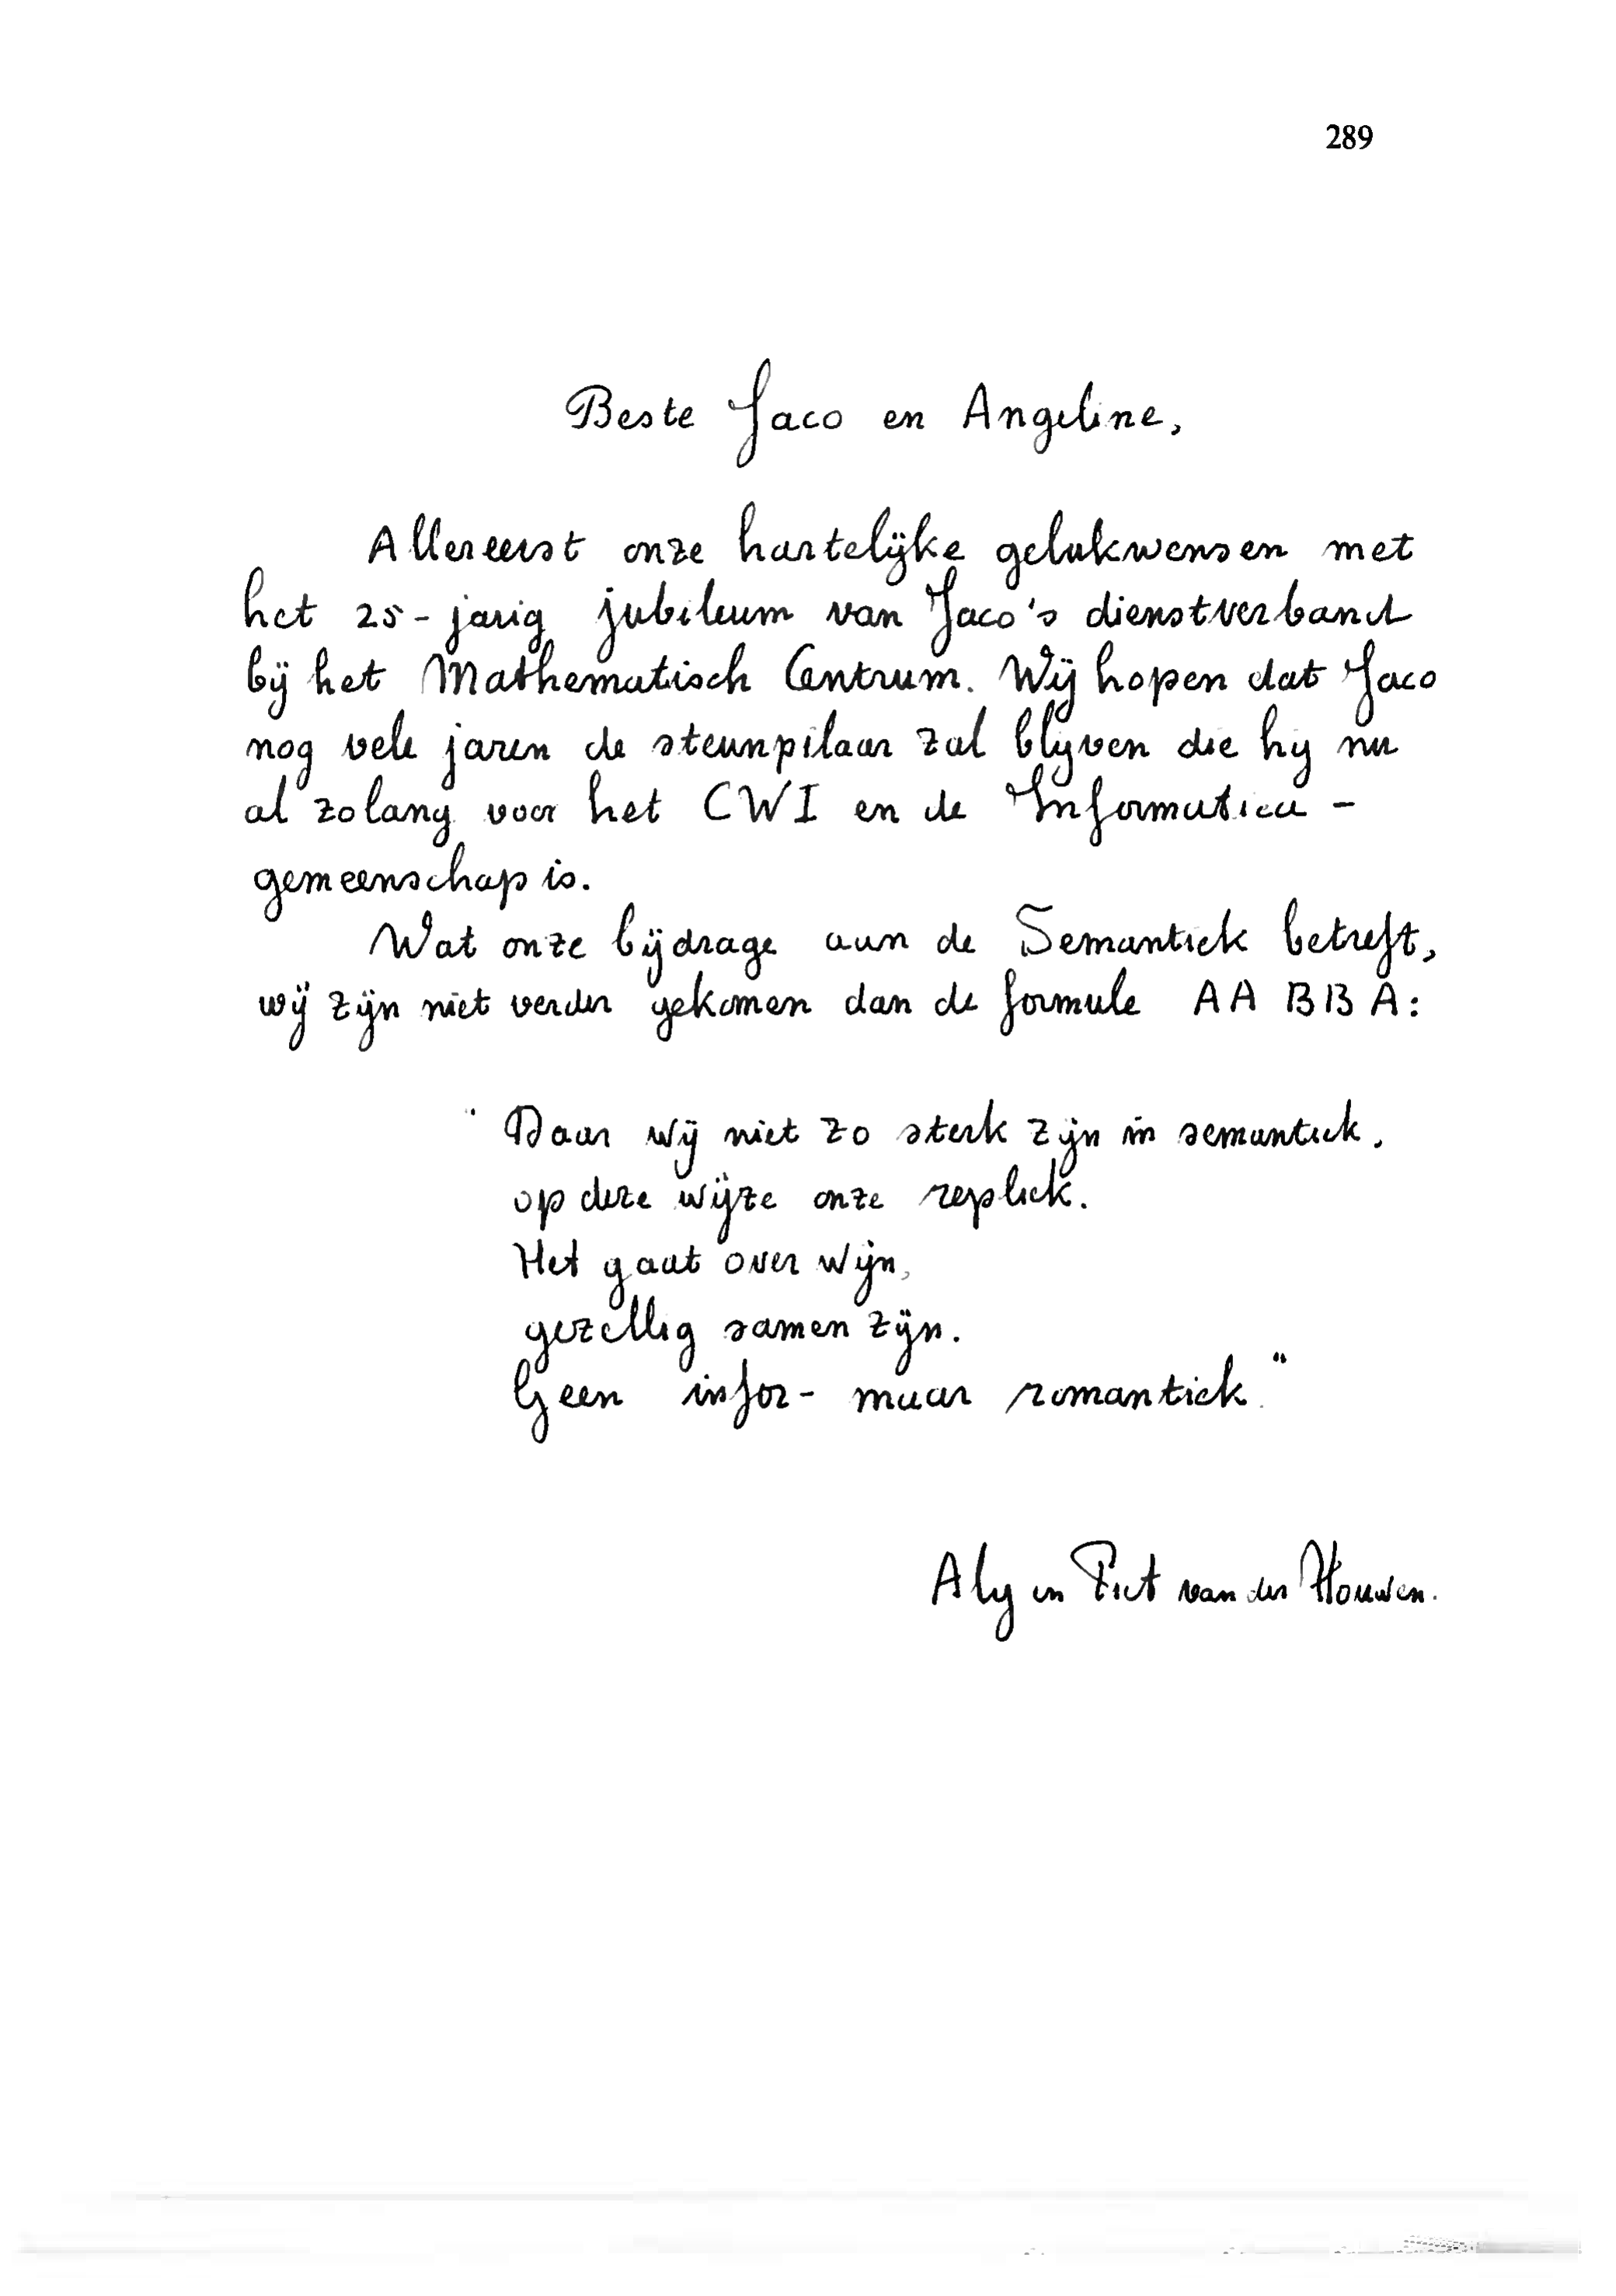 289
Beste Jaco en Angeline,
Allereerst onze hartelijke gelukwensen met
het 25-jarig jubileum van Jaco's dienstverband
bij het Mathematisch Centrum. Wij hopen dat Jaco
nog vele jaren de steunpilaar zal blijven die hij nu
al zolang voor het CWI en de Informatica-
gemeenschap is.
Wat onze bijdrage aan de Semantiek betreft,
wij zijn niet verder gekomen dan de formule AA BB A:
"Daar wij niet zo sterk zijn in semantiek,
op deze wijze onze repliek.
Het gaat over wijn,
gezellig samen zijn.
Geen infor- maar romantiek."
Aly en Piet van der Houwen.